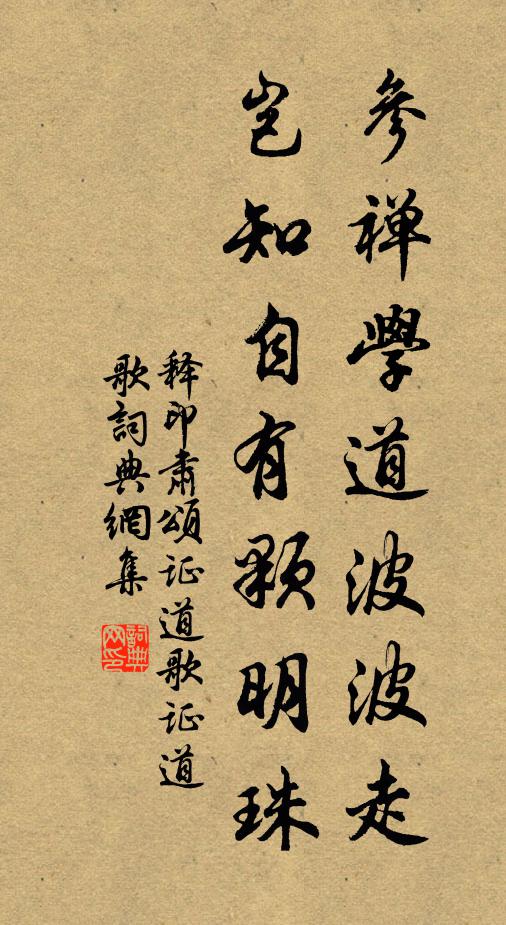 參禅學道波波走
岂知自有顆明珠
释印肃頌证道歌证道
歌詞典網集
詞典网印